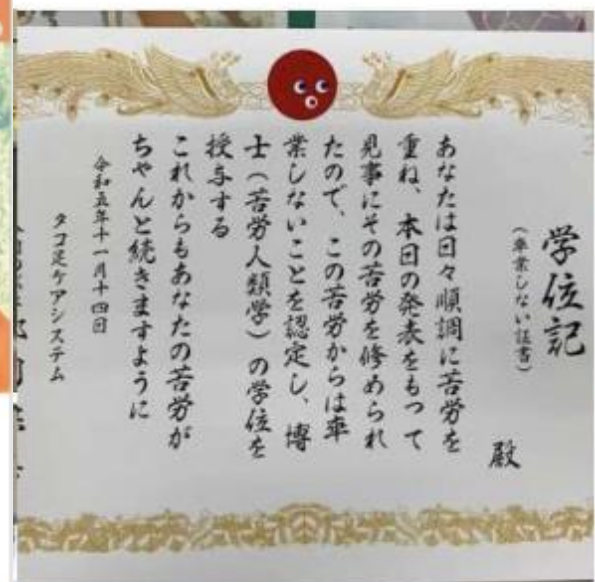 学位記
(卒業しない証書)
殿
あなたは日々順調に苦労を
重ね、本日の発表をもって
見事にその苦労を修められ
たので、この苦労からは卒
業しないことを認定し、博
士(苦労人類学)の学位を
授与する
これからもあなたの苦労が
ちゃんと続きますように
令和五年十一月十四日
タコ足ケアシステム